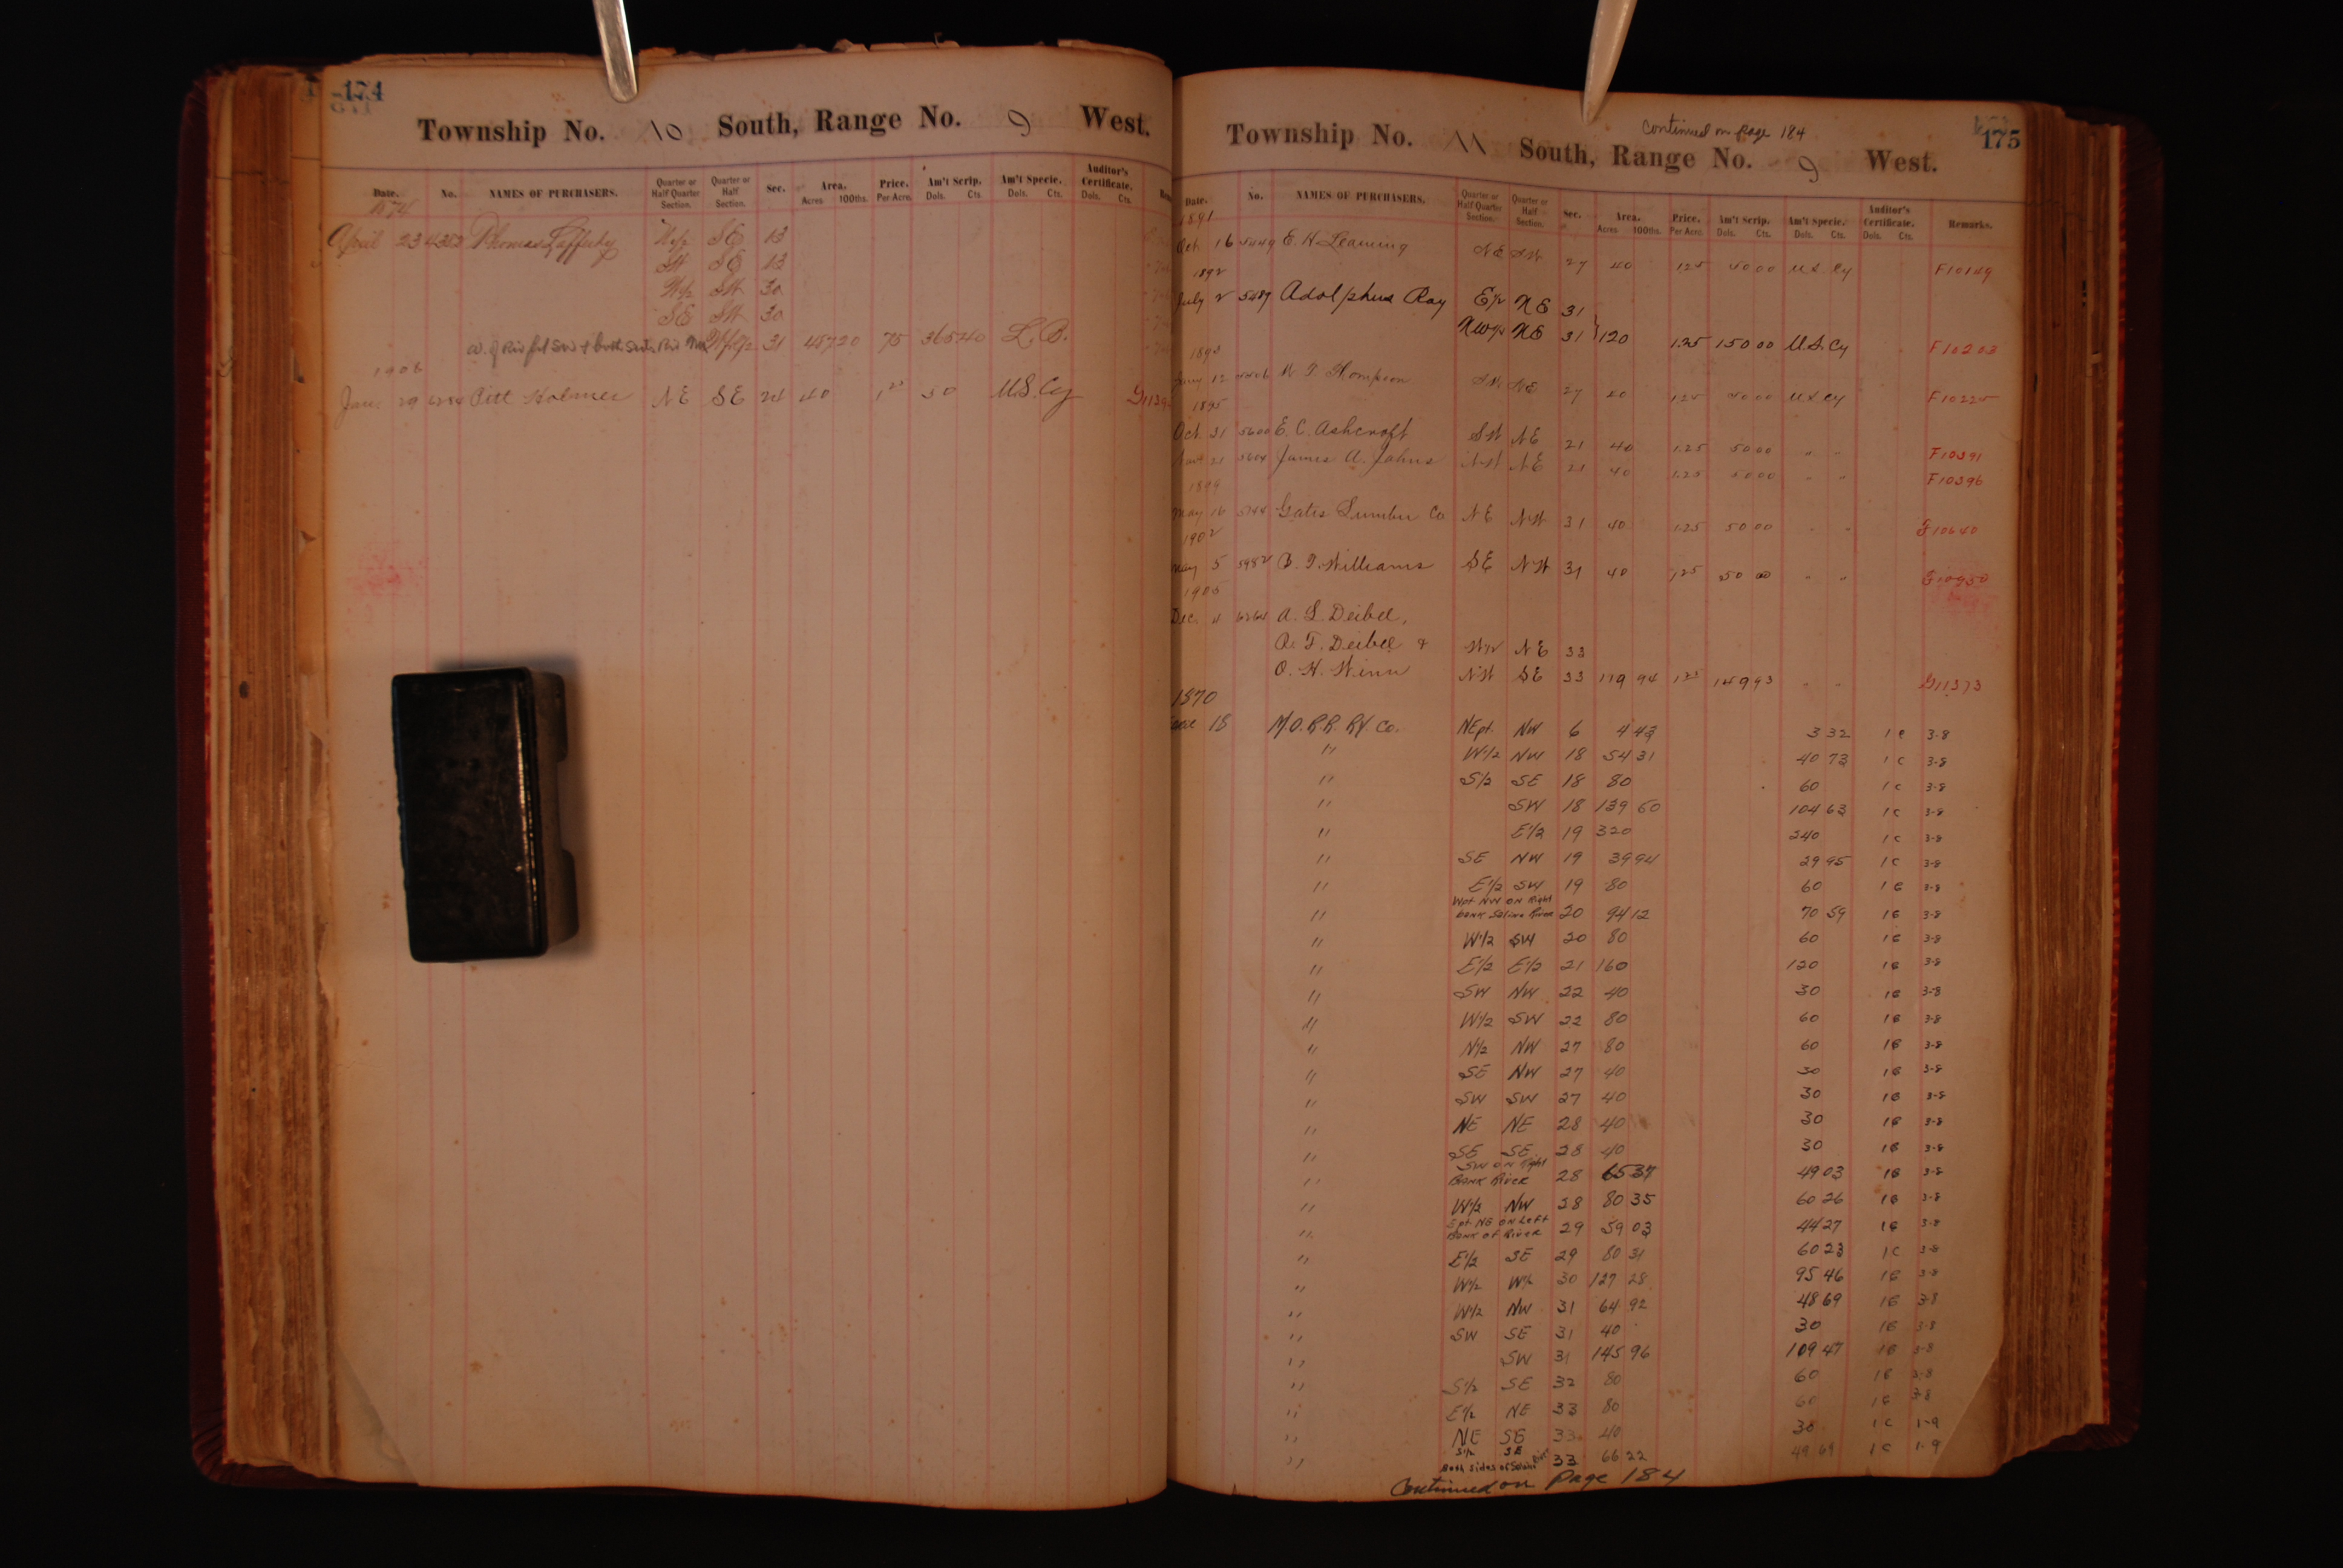 174
Township No. 10 South, Range No. 9 West.
Date. No. NAMES OF PURCHASERS. Quarter or Half Quarter Section. Quarter or Half Section. Sec. Area. Acres 100ths. Price. Per Acre. Am't Scrip. Dols. Cts. Am't Specie. Dols. Cts. Auditor's Certificate. Dols. Cts.
1874
April 23 Thomas Lafferty W1/2 SE 13
SW SE 13
W1/2 SW 30
SE SW 30
31 457 20 75 365 40 L. B.
1906
Jan. 29 Pitt Holmes NE SE 24 40 1 25 50 U.S. Cy
Continued on page 184
175
Township No. 11 South, Range No. 9 West.
Date. No. NAMES OF PURCHASERS. Quarter or Half Quarter Section. Quarter or Half Section. Sec. Area. Acres 100ths. Price. Per Acre. Am't Scrip. Dols. Cts. Am't Specie. Dols. Cts. Auditor's Certificate. Dols. Cts. Remarks.
1891
Oct. 16 5449 E. H. Leaming NE SW 27 40 1.25 50 00 U.S. Cy F10149
1892
July 2 5487 Adolphus Ray E1/2 NE 31
NW1/4 NE 31 120 1.25 150 00 U.S. Cy F10203
1893
12 Thompson SW NE 27 40 1.25 50 00 U.S. Cy F10225
1895
Oct. 31 5600 E. C. Ashcroft SW NE 21 40 1.25 50 00 " " F10391
Nov. 21 5604 James A. Johns NW NE 21 40 1.25 50 00 " " F10396
1899
May 16 5744 Gates Lumber Co NE NW 31 40 1.25 50 00 " " F10640
1902
May 5 5982 B. F. Williams SE NW 31 40 1.25 50 00 " " G10950
1905
Dec. 4 6264 A. L. Deibel,
A. T. Deibel & W1/2 NE 33
O. H. Winn NW SE 33 119 94 1 25 149 93 " " G11373
1870
18 M.O.R.R. RY. Co. NEpt. NW 6 4 43 3 32 1 C 3-8
" W1/2 NW 18 54 31 40 73 1 C 3-8
" S1/2 SE 18 80 60 1 C 3-8
" SW 18 139 50 104 63 1 C 3-8
" E1/2 19 320 240 1 C 3-8
" SE NW 19 39 94 29 95 1 C 3-8
" E1/2 SW 19 80 60 1 C 3-8
Wpt NW ON Right
" bank Saline River 20 94 12 70 59 1 C 3-8
" W1/2 SW 20 80 60 1 C 3-8
" E1/2 E1/2 21 160 120 1 C 3-8
" SW NW 22 40 30 1 C 3-8
" W1/2 SW 22 80 60 1 C 3-8
" N1/2 NW 27 80 60 1 C 3-8
" SE NW 27 40 30 1 C 3-8
" SW SW 27 40 30 1 C 3-8
" NE NE 28 40 30 1 C 3-8
" SE SE 28 40 30 1 C 3-8
SW ON Right
" BANK RIVER 28 65 37 49 03 1 C 3-8
" W1/2 NW 28 80 35 60 26 1 C 3-8
Ept NE ON Left
" BANK OF RIVER 29 59 03 44 27 1 C 3-8
" E1/2 SE 29 80 31 60 23 1 C 3-8
" W1/2 W1/2 30 127 28 95 46 1 C 3-8
" W1/2 NW 31 64 92 48 69 1 C 3-8
" SW SE 31 40 30 1 C 3-8
" SW 31 145 96 109 47 1 C 3-8
" S1/2 SE 32 80 60 1 C 3-8
" E1/2 NE 33 80 60 1 C 3-8
" NE SE 33 40 30 1 C 1-9
S1/2 SE
" Both sides of Saline River 33 66 22 49 69 1 C 1-9
Continued on page 184